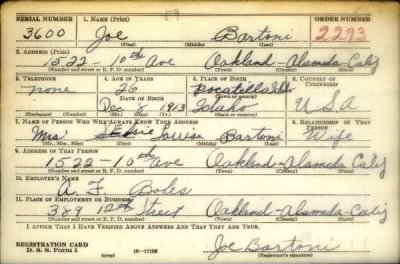 SERIAL NUMBER 1. NAME (Print) ORDER NUMBER
3600 Joe Bartoni 2293
(First) (Middle) (Last)
2. ADDRESS (Print)
1522-10th Ave Oakland-Alameda Calif
(Number and street or R. F. D. number) (Town) (County) (State)
3. TELEPHONE 4. AGE IN YEARS 5. PLACE OF BIRTH 6. COUNTRY OF CITIZENSHIP
none 26 Pocatello
DATE OF BIRTH
Dec 8 1913 Idaho U S A
(Exchange) (Number) (Mo.) (Day) (Yr.) (State or country)
7. NAME OF PERSON WHO WILL ALWAYS KNOW YOUR ADDRESS 8. RELATIONSHIP OF THAT PERSON
Mrs Elsie Louise Bartoni Wife
(Mr., Mrs., Miss) (First) (Middle) (Last)
9. ADDRESS OF THAT PERSON
1522-10th Ave Oakland-Alameda Calif
(Number and street or R. F. D. number) (Town) (County) (State)
10. EMPLOYER'S NAME
A. F. Boles
11. PLACE OF EMPLOYMENT OR BUSINESS
389 12th Street Oakland-Alameda-Calif
(Number and street or R. F. D. number) (Town) (County) (State)
I AFFIRM THAT I HAVE VERIFIED ABOVE ANSWERS AND THAT THEY ARE TRUE.
REGISTRATION CARD
D. S. S. Form 1 (over) 16-17105 Joe Bartoni
(Registrant's signature)